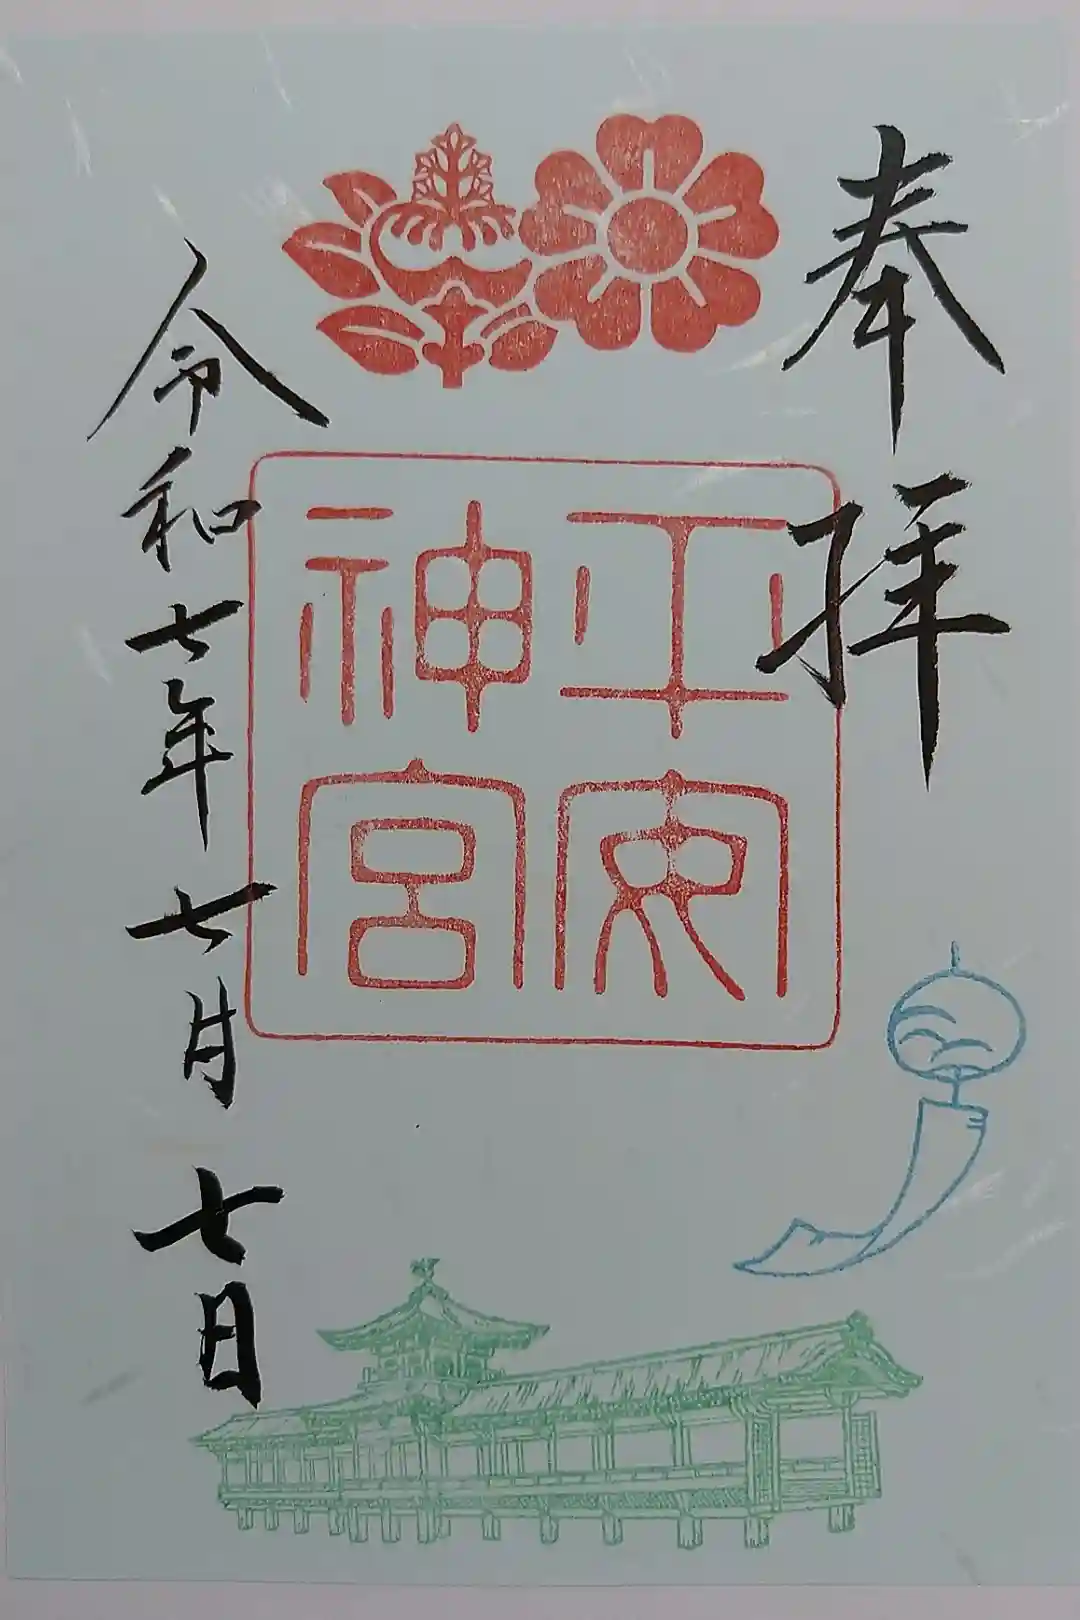 奉拝
平安
神宮
令和七年七月七日